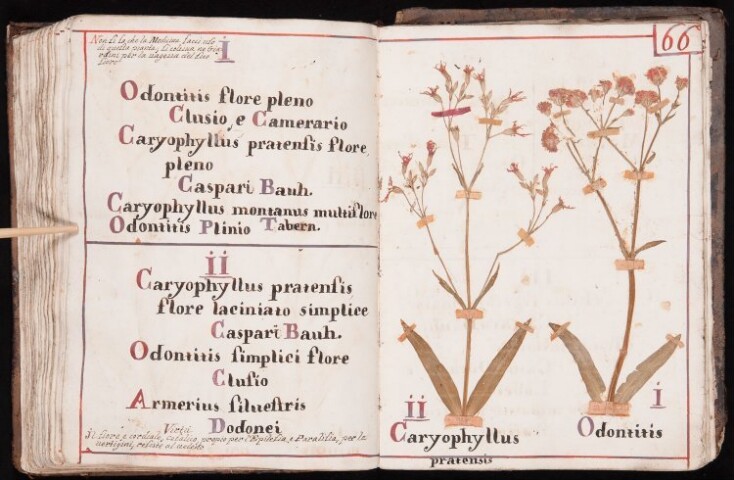 Non si sa che la Medicina facci uso
di questa pianta, si coltiva ne Giar
dini per la vaghezza del suo
fiore
i
Odontitis flore pleno
Clusio, e Camerario
Caryophyllus pratensis flore
pleno
Caspari Bauh.
Caryophyllus montanus multiflore
Odontitis Plinio Tabern.
ii
Caryophyllus pratensis
flore laciniato simplice
Caspari Bauh.
Odontitis simplici flore
Clusio
Armerius siluestris
Dodonei
Virtù
il fiore è cordiale, cefalico, proprio per l'Epilessia, e Paralisia, per le
vertigini, resiste al veleno
66
ii
Caryophyllus
pratensis
i
Odontitis